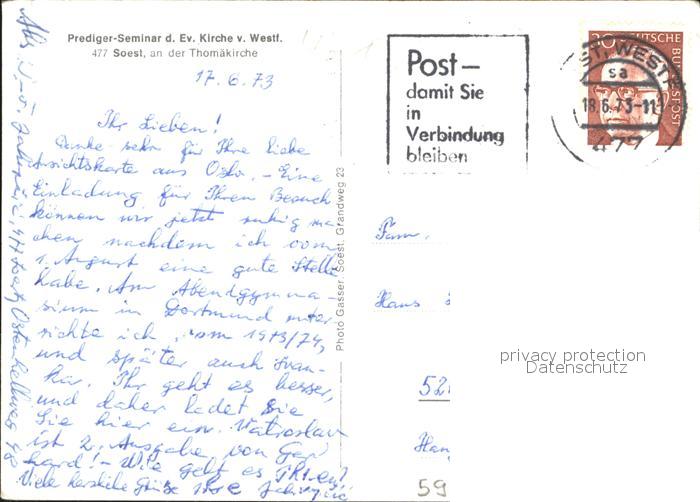 Prediger-Seminar d. Ev. Kirche v. Westf.
477 Soest, an der Thomäkirche
17.6.73
Ihr Lieben!
Danke sehr für Ihre liebe
Ansichtskarte aus Oslo. - Eine
Einladung für Ihren Besuch
können wir jetzt ruhig ma-
chen nachdem ich vom
1. August eine gute Stelle
habe. Am Abendgymna-
sium in Dortmund unter-
richte ich, vom 1973/74,
und später auch
Ihr geht es besser,
und daher ladet sie
Sie hier ein. Vatroslav
ist 2. Ausgabe von Ger
hard! - Wie geht es Ihnen?
Viele herzliche Grüße Ihre
Photo Gasser, Soest, Grandweg 23
Post –
damit Sie
in
Verbindung
bleiben
30 DEUTSCHE BUNDESPOST
ST, WESTF
sa
18.6.73-11
477
Fam.
Hans
52
59
privacy protection
Datenschutz